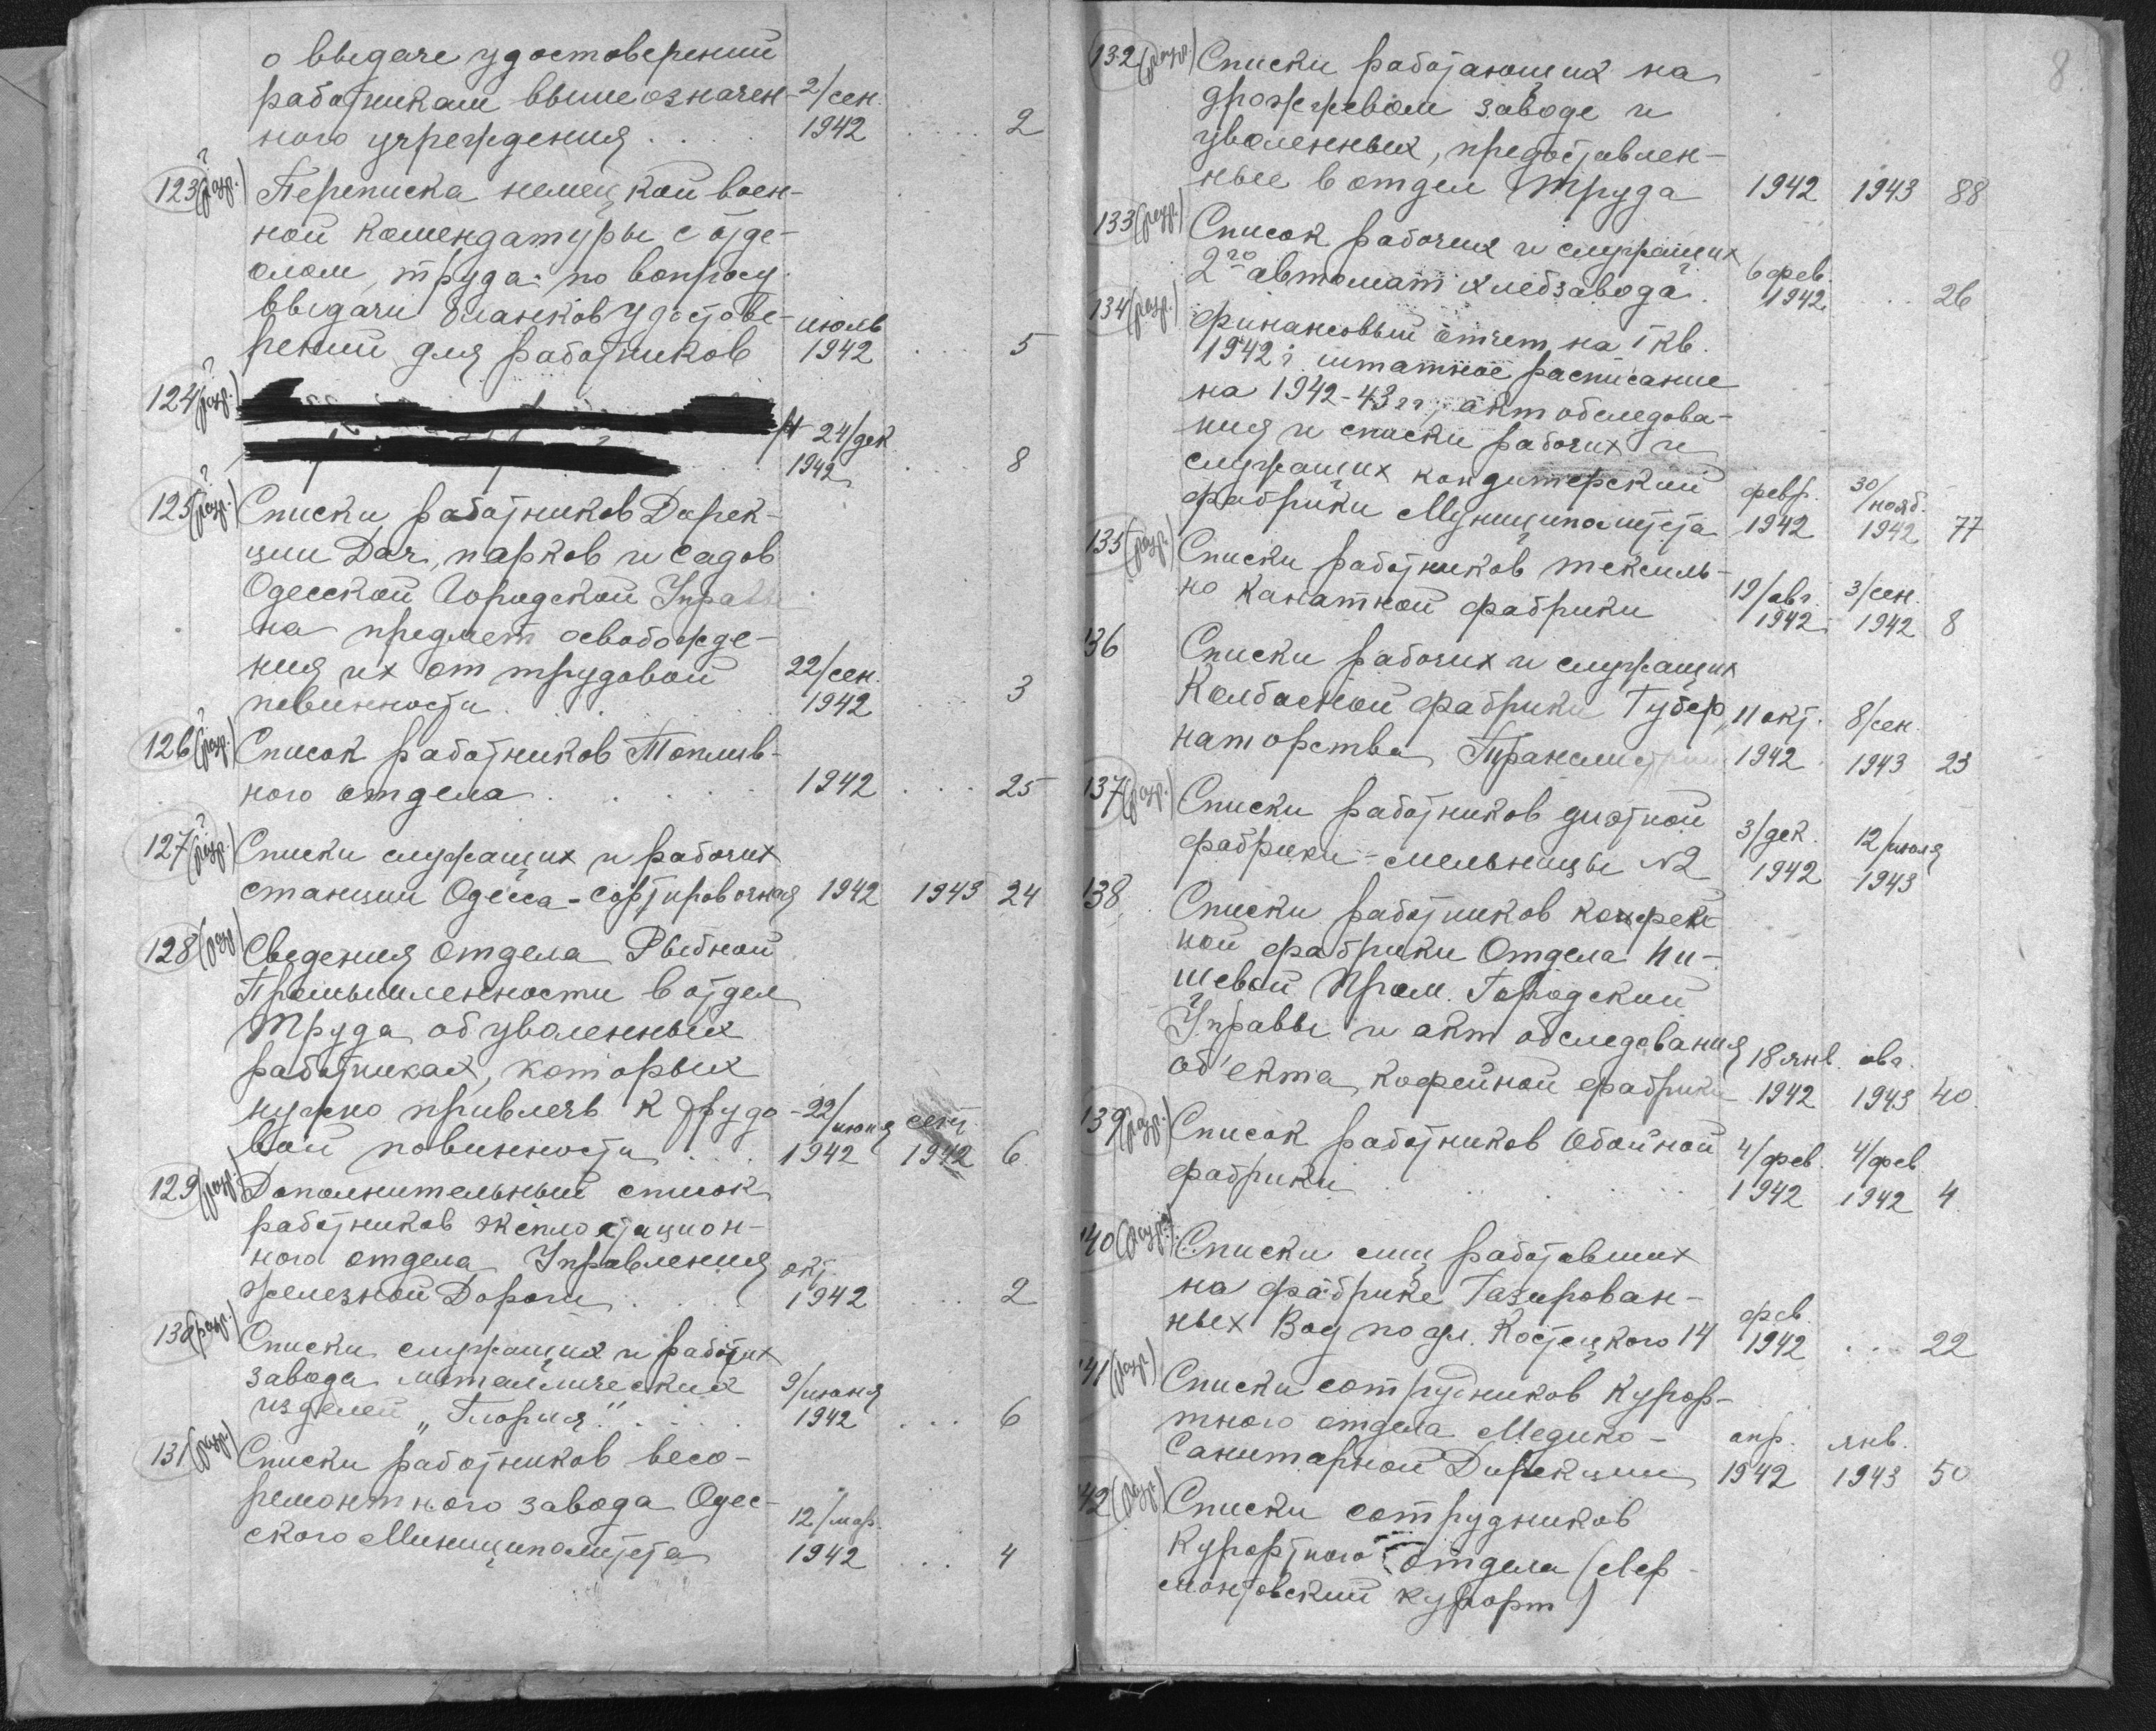 о выдаче удостоверений
работникам вышеозначен- 2/сен.
ного учреждения . . . 1942 . . . . 2
123 (разр.) ? Переписка немецкой воен-
ной комендатуры с отде-
олом труда по вопросу
выдачи бланков удостове- июль
рений для работников 1942 . . . 5
124 (разр.) ?
24/дек
1942 . . . 8
125 (разр.) ? Списки работников Дирек-
ции Дач, парков и садов
Одесской Городской Управы
на предмет освобожде-
ния их от трудовой 22/сен.
повинности . . . . 1942 . . . 3
126 (разр.) ? Список работников Топлив-
ного отдела . . . . . 1942 . . . 25
127 (разр.) ? Списки служащих и рабочих
станции Одесса-сортировочная 1942 1943 24
128 (разр) Сведения отдела Рыбной
Промышленности в отдел
Труда об уволенных
работниках, которых
нужно привлечь к трудо- 22/июня сент.
вой повинности . . . 1942 1942 6
129 (разр.) Дополнительный список
работников эксплоатацион-
ного отдела Управления окт.
железной Дороги . . . . 1942 . . 2
130 (разр.) Списки служащих и рабочих
завода металлических 9/июня
изделей „Глория". . . . . 1942 . . . 6
131 (разр) Списки работников весо-
ремонтного завода Одес- 12/мар.
ского Муниципалитета 1942 . . . 4
8
132 (разр.) Списки работающих на
дрожжевом заводе и
уволенных, предоставлен-
ные в отдел Труда 1942 1943 88
133 (разр.) Список рабочих и служащих
2го автомат хлебзавода. 6 фев. 1942 . . 26
134 (разр.) финансовый отчет на I кв.
1942 г штатное расписание
на 1942-43 гг, акт обследова-
ния и списки рабочих и
служащих кондитерской февр. 30/нояб.
фабрики Муниципалитета 1942 1942 77
135 (разр.) Списки работников тексиль-
но канатной фабрики 19/авг. 1942 3/сен. 1942 8
136 Списки рабочих и служащих
Колбасной фабрики Губер, 11 окт. 8/сен.
наторства Транснистрии 1942 1943 23
137 (разр.) Списки работников диэтной
фабрики-мельницы №2 3/дек. 1942 12/июля 1943
138 Списки работников
ной фабрики Отдела Пи-
щевой Пром. Городской
Управы и акт обследования 18 янв. авг.
об'екта кофейной фабрики 1942 1943 40
139 (разр.) Список работников Обойной 4/фев. 4/фев
фабрики . . . . . . . 1942 1942 4
140 (разр.) Списки лиц работавших
на фабрике Газирован- фев.
ных Вод по ул. Костецкого 14 1942 . . . 22
141 (разр) Списки сотрудников Курор-
тного отдела Медико- апр. янв.
Санитарной Дирекции 1942 1943 50
142 (разр) Списки сотрудников
Курортного отдела (Лер-
монтовский курорт)